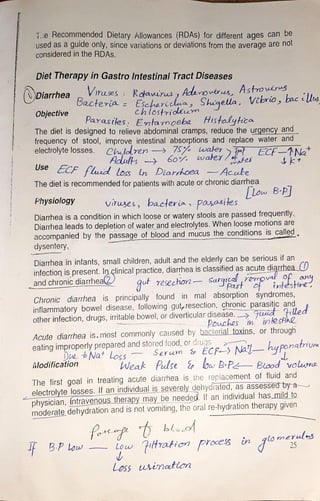 The Recommended Dietary Allowances (RDAs) for different ages can be
used as a guide only, since variations or deviations from the average are not
considered in the RDAs.
Diet Therapy in Gastro Intestinal Tract Diseases
Viruses : Rotavirus, Adenovirus, Astrovirus
① Diarrhea
Bacteria = Escherichia, Shigella, Vibrio, bacillus,
Objective
chlostridium
Parasites: Entamoeba Histolytica
The diet is designed to relieve abdominal cramps, reduce the urgency and
frequency of stool, improve intestinal absorptions and replace water and
electrolyte losses.
Children → 75% water
ECF → ↑Na⁺
Adults → 60% water
↓K⁺
Use
ECF fluid loss in Diarrhoea — Acute
The diet is recommended for patients with acute or chronic diarrhea
[Low B.P]
Physiology
viruses, bacteria, parasites
Diarrhea is a condition in which loose or watery stools are passed frequently.
Diarrhea leads to depletion of water and electrolytes. When loose motions are
accompanied by the passage of blood and mucus the conditions is called
dysentery.
Diarrhea in infants, small children, adult and the elderly can be serious if an
infection is present. In clinical practice, diarrhea is classified as acute diarrhea ①
and chronic diarrhea②
gut resection — surgical removal of any
part of intestine.
Chronic diarrhea is principally found in mal absorption syndromes,
inflammatory bowel disease, following gut resection, chronic parasitic and
other infection, drugs, irritable bowel, or diverticular disease. → fluid filled
Pouches in intestine
Acute diarrhea is most commonly caused by bacterial toxins, or through
eating improperly prepared and stored food, or drugs
Due to Na⁺ loss — Serum & ECF → Na↓ — hyponatrium
Modification
Weak Pulse & low B.P ← Blood volume
The first goal in treating acute diarrhea is the replacement of fluid and
electrolyte losses. If an individual is severely dehydrated, as assessed by a
physician, intravenous therapy may be needed. If an individual has mild to
moderate dehydration and is not vomiting, the oral re-hydration therapy given
Passage of blood
If B.P low — Low filtration process in glomerulus
25
↓
Loss urination